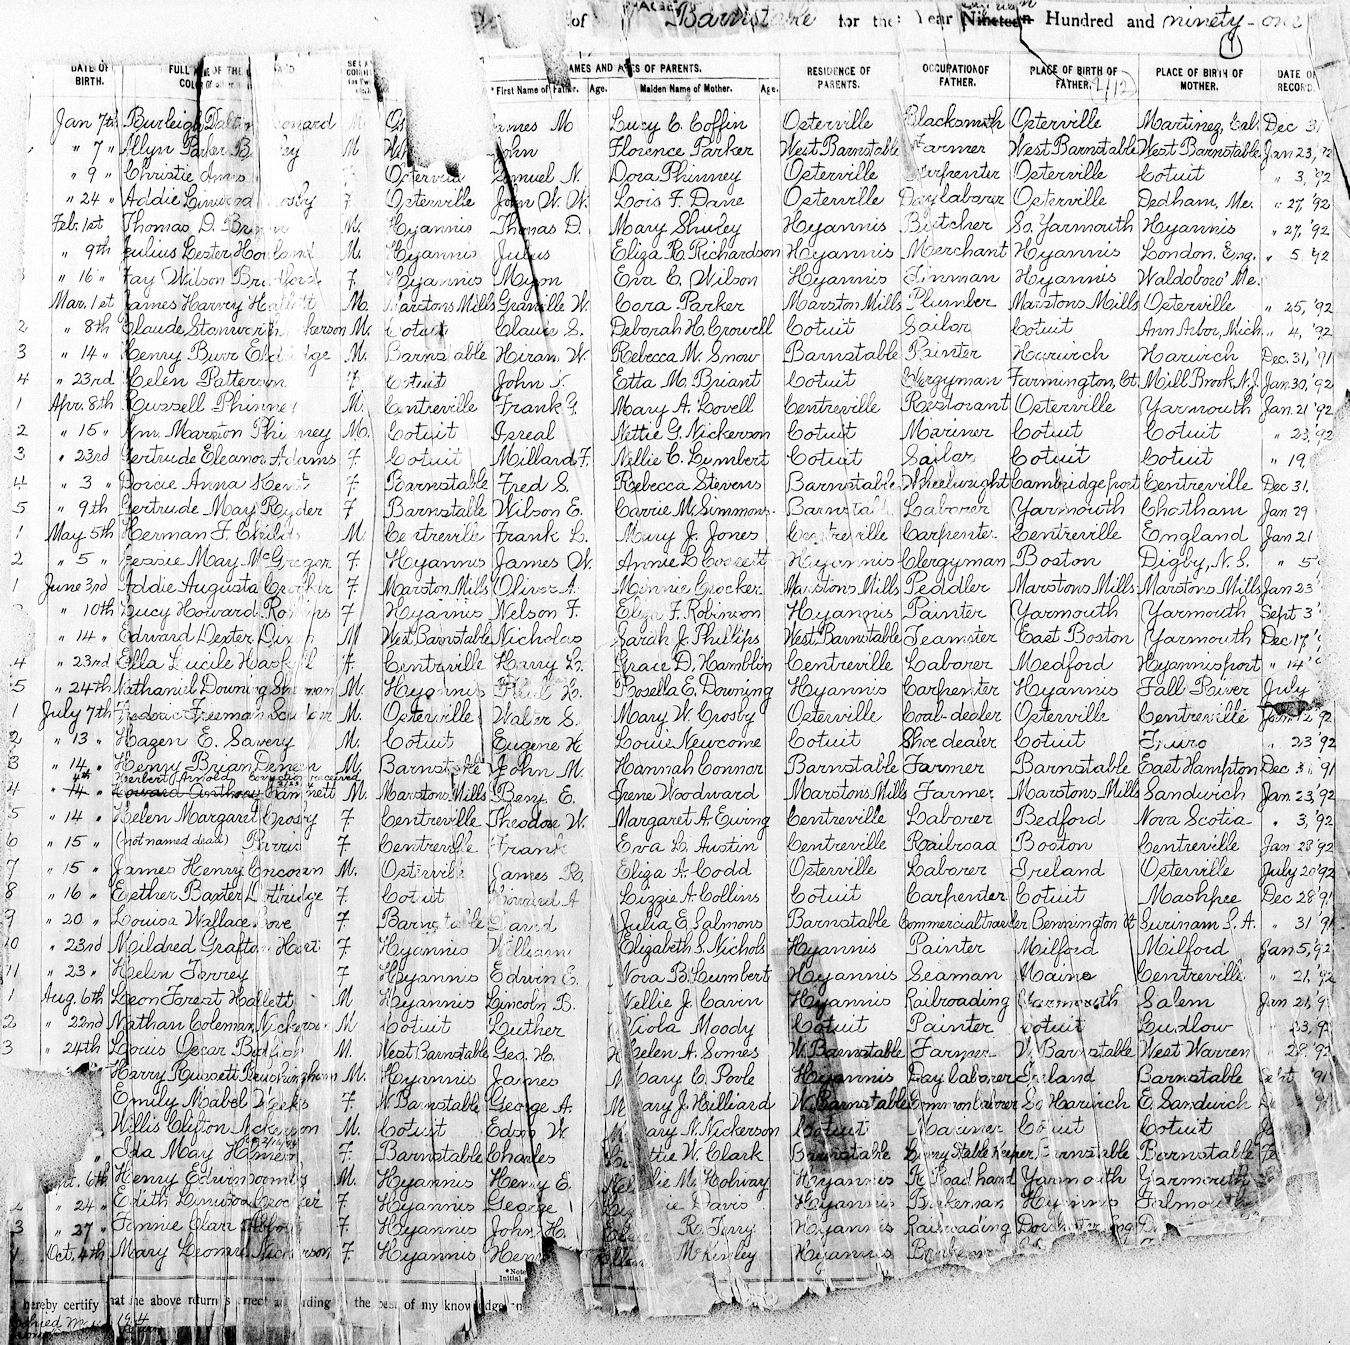 of Barnstable for the Year Nineteen Hundred and ninety-one
DATE OF BIRTH. FULL NAME OF THE CHILD SEX NAMES AND AGES OF PARENTS. RESIDENCE OF PARENTS. OCCUPATION OF FATHER. PLACE OF BIRTH OF FATHER. PLACE OF BIRTH OF MOTHER. DATE OF RECORD.
First Name of Father. Age. Maiden Name of Mother. Age.
Jan 7th Burleigh Dalton M. James M Lucy C. Coffin Osterville Blacksmith Osterville Martinez, Cal. Dec 31
" 7 " Allyn Parker M John Florence Parker West Barnstable Farmer West Barnstable West Barnstable Jan 23, '92
" 9 " Christie Osterville Samuel N. Dora Phinney Osterville Carpenter Osterville Cotuit " 3, '92
" 24 " Addie Linwood Crosby F Osterville John W. W. Lois F. Dane Osterville Day laborer Osterville Dedham, Me. " 27, '92
Feb. 1st Thomas D. M. Hyannis Thomas D. Mary Shirley Hyannis Butcher So. Yarmouth Hyannis " 27, '92
" 9th Julius Lester Howland M. Hyannis Julius Eliza R. Richardson Hyannis Merchant Hyannis London, Eng. " 5 '92
" 16 " Fay Wilson Bradford F. Hyannis Myron Eva C. Wilson Hyannis Tinman Hyannis Waldoboro' Me.
Mar. 1st James Harvey Hallett M. Marstons Mills Granville W. Cora Parker Marston Mills Plumber Marstons Mills Osterville " 25, '92
2 " 8th Claude Stanwer Nickerson M. Cotuit S. Deborah H. Crowell Cotuit Sailor Cotuit Ann Arbor, Mich. " 4, '92
3 " 14 " Henry Burr Eldridge M. Barnstable Hiram W. Rebecca M. Snow Barnstable Painter Harwich Harwich Dec. 31, '91
4 " 23rd Helen Patterson F. Cotuit John Etta M. Briant Cotuit Clergyman Farmington, Ct. Mill Brook N.J. Jan. 30, '92
1 Apr. 8th Russell Phinney M. Centreville Frank G. Mary A. Lovell Centreville Restorant Osterville Yarmouth Jan. 21 '92
2 " 15 " Wm. Marston Phinney M. Cotuit Isreal Nettie G. Nickerson Cotuit Mariner Cotuit Cotuit " 23, '92
3 " 23rd Gertrude Eleanor Adams F. Cotuit Millard F. Nellie C. Lumbert Cotuit Sailor Cotuit Cotuit " 19
4 " 3 " Anna Kent F. Barnstable Fred S. Rebecca Stevens Barnstable Wheelwright Cambridgeport Centreville Dec 31.
5 " 9th Gertrude May Ryder F Barnstable Wilson E. Carrie M. Simmons Barnstable Laborer Yarmouth Chatham Jan 29
1 May 5th Herman F. Childs M. Centreville Frank L. Mary J. Jones Centreville Carpenter Centreville England Jan 21
2 " 5 " Jessie May McGregor F. Hyannis James W. Annie L. Hyannis Clergyman Boston Digby, N.S. " 5
1 June 3rd Addie Augusta Crocker F. Marston Mills Oliver A. Minnie Crocker Marstons Mills Peddler Marstons Mills Marstons Mills Jan 23
" 10th Lucy Howard Robbins F Hyannis Nelson F. Eliza F. Robinson Hyannis Painter Yarmouth Yarmouth Sept 3
" 14 " Edward Dexter Dixon M West Barnstable Nicholas Sarah J. Phillips West Barnstable Teamster East Boston Yarmouth Dec 17
4 " 23rd Ella Lucile Haskell F. Centreville Harry L. Grace D. Hamblin Centreville Laborer Medford Hyannisport " 14
5 " 24th Nathaniel Downing M. Hyannis L. Rosella E. Downing Hyannis Carpenter Hyannis Fall River July
1 July 7th Frederic Freeman M. Osterville Walter S. Mary W. Crosby Osterville Coal-dealer Osterville Centreville Jan 12 '92
2 " 13 " Hazen E. Savery M. Cotuit Eugene H Louie Newcome Cotuit Shoe dealer Cotuit Truro " 23 '92
3 " 14 " Henry Brian M. Barnstable John M. Hannah Connor Barnstable Farmer Barnstable East Hampton Dec 31 '91
4th Herbert Arnold correction received
4 " 14 " Howard Anthony M. Marstons Mills Benj E. Irene Woodward Marstons Mills Farmer Marstons Mills Sandwich Jan. 23, '92
5 " 14 " Helen Margaret Crosby F Centreville Theodore W. Margaret A. Ewing Centreville Laborer Bedford Nova Scotia " 3, '92
6 " 15 " (not named dead) F Centreville Frank Eva L. Austin Centreville Railroad Boston Centreville Jan 28 '92
7 " 15 " James Henry M. Osterville James R. Eliza A. Codd Osterville Laborer Ireland Osterville July 20 '92
8 " 16 " Esther Baxter Dottridge F. Cotuit Howard A Lizzie A. Collins Cotuit Carpenter Cotuit Mashpee Dec 28 '91
9 " 20 " Louisa Wallace F Barnstable David Julia E. Salmons Barnstable Commercial traveler Bennington Vt Surinam S. A. " 31 '91
10 " 23rd Mildred Grafton F. Hyannis William Elizabeth S. Nichols Hyannis Painter Milford Milford Jan 5, '92
11 " 23 " Helen Torrey F Hyannis Edwin E. Nora B. Lumbert Hyannis Seaman Maine Centreville " 21, '92
1 Aug. 6th Leon Forest Hallett M Hyannis Lincoln B. Nellie J. Cavin Hyannis Railroading Yarmouth Salem Jan 21, '9
2 " 22nd Nathan Coleman Nickerson M Cotuit Luther Viola Moody Cotuit Painter Cotuit Ludlow " 23, '92
3 " 24th Louis Oscar M. West Barnstable Geo. H. Helen A. Somes W. Barnstable Farmer W. Barnstable West Warren " 28, '92
Harry Russett M. Hyannis James Mary C. Poole Hyannis Day laborer Ireland Barnstable Sept '91
Emily Mabel Weeks F. W. Barnstable George A. Mary J. Hilliard W. Barnstable Common laborer So Harwich E. Sandwich
Willis Clifton Nickerson M. Cotuit W. Mary N. Nickerson Cotuit Mariner Cotuit Cotuit
" Ida May F. Barnstable Charles Hattie W. Clark Barnstable Livery Stable Keeper Barnstable Barnstable
6th Henry Edwin M. Hyannis Henry E. M. Holway Hyannis R. Road hand Yarmouth Yarmouth
" 24 " Edith Crocker F Hyannis George Davis Hyannis Brakeman Hyannis Falmouth
3 " 27 " F Hyannis John H. R. Terry Hyannis Railroading Dorchester Eng
Oct. 4th Mary Nickerson F. Hyannis Henry McKinley Hyannis
hereby certify that the above return is correct according to the best of my knowledge